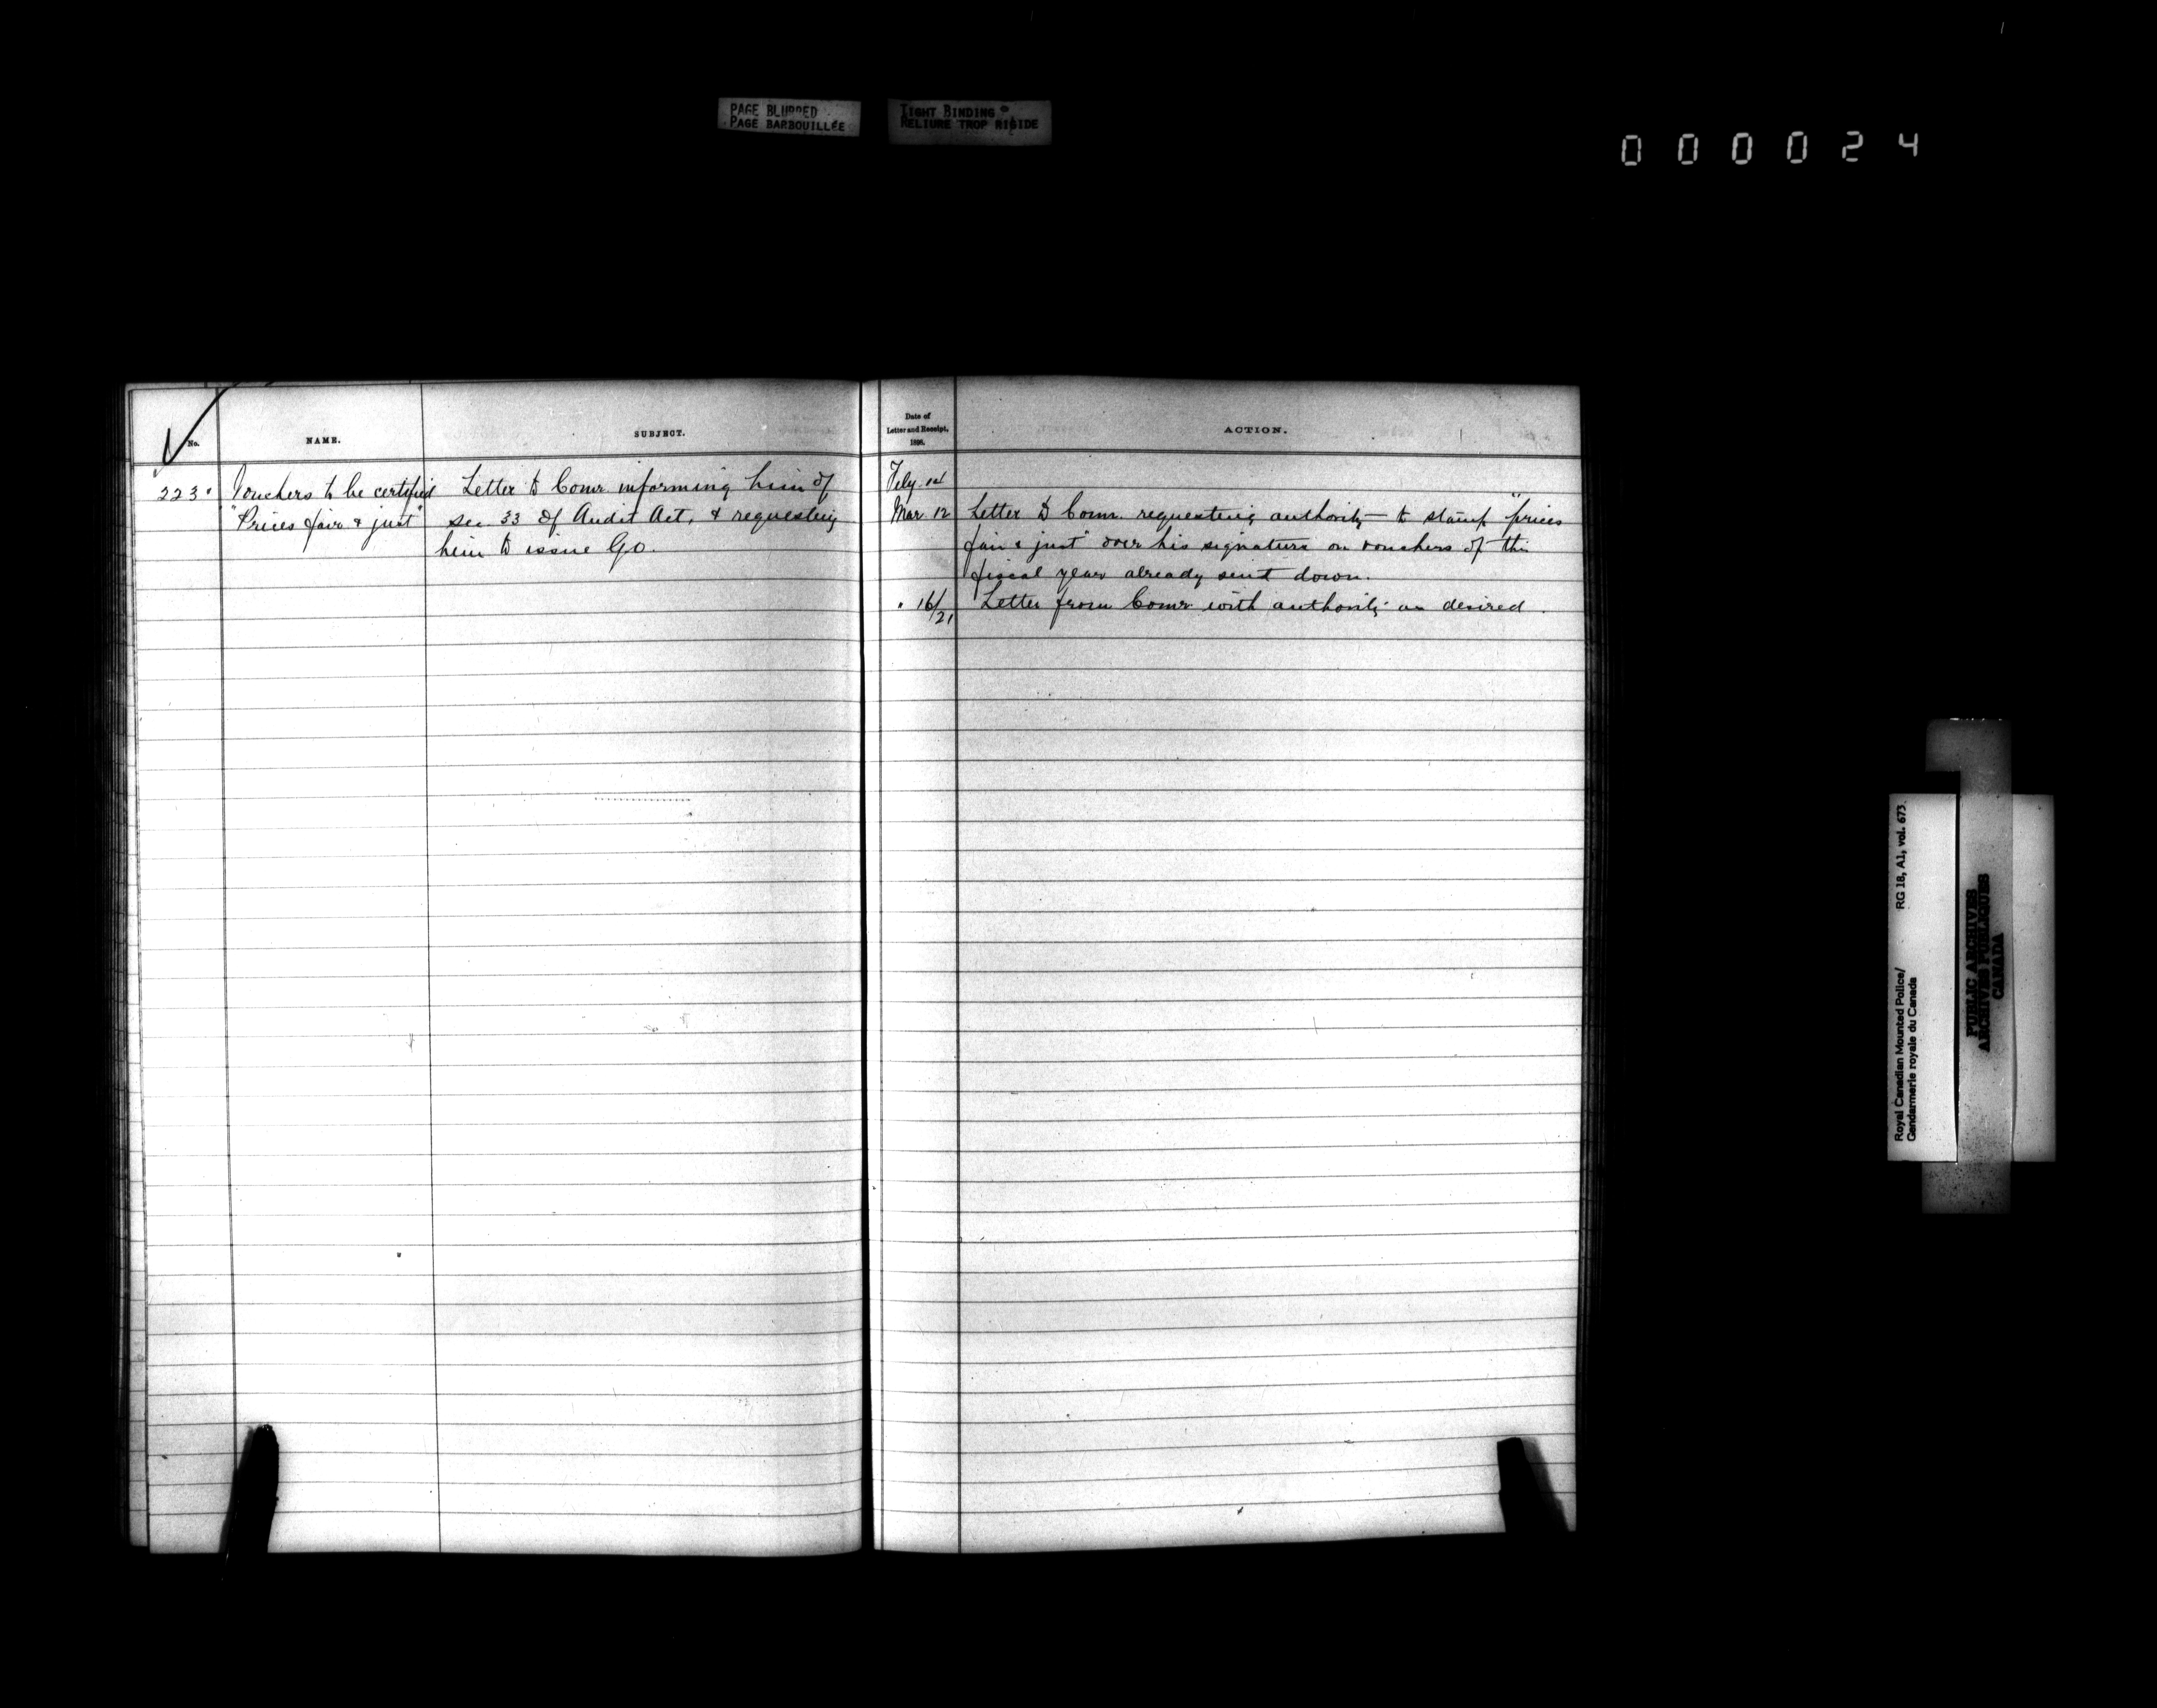 PAGE BLURRED
PAGE BARBOUILLÉE
TIGHT BINDING
RELIURE TROP RIGIDE
000024
No.
NAME.
SUBJECT.
Date of
Letter and Receipt,
1898.
ACTION.
223 Vouchers to be certified
"Prices fair & just"
Letter to Comr informing him of
sec 33 of Audit Act, & requesting
him to issue G.O.
Feby. 14
Mar. 12 Letter to Comr. requesting authority to stamp "prices
fair & just" over his signature on vouchers of this
fiscal year already sent down.
" 16/21 Letter from Comr with authority as desired.
Royal Canadian Mounted Police/
Gendarmerie royale du Canada
RG 18, A1, vol. 673.
PUBLIC ARCHIVES
ARCHIVES PUBLIQUES
CANADA